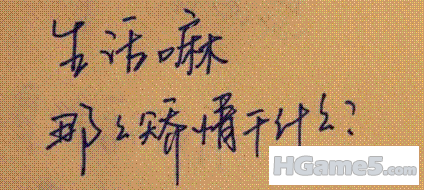 生活嘛
那么矫情干什么?
HGame5.com